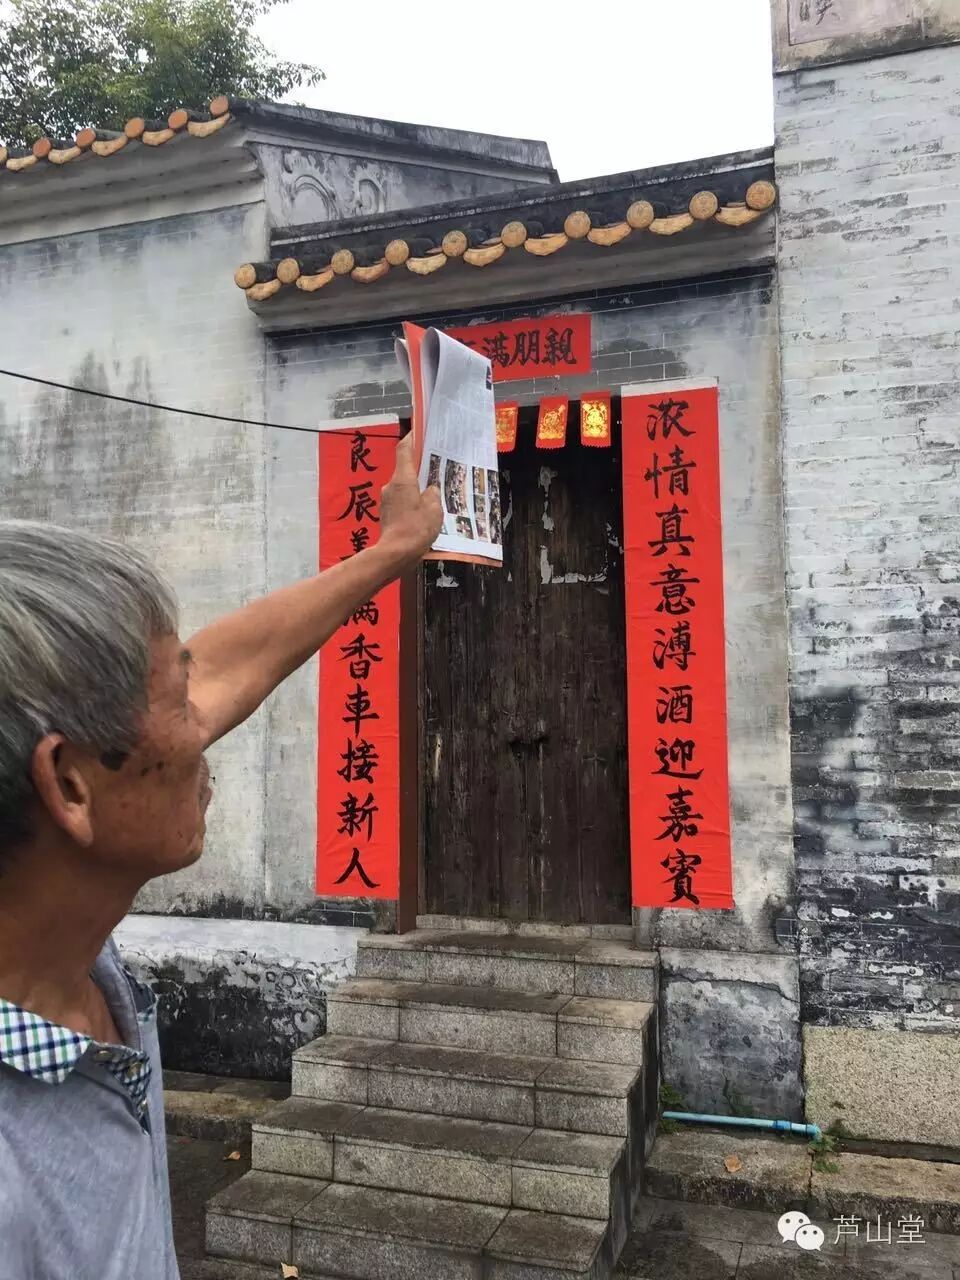 親朋满
浓情真意溥酒迎嘉賓
良辰美满香車接新人
芦山堂